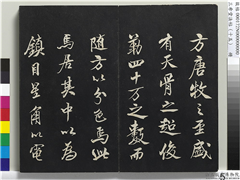 方唐牧之至盛
有天骨之超俊
萬四十萬之數而
隨方以分色焉此
馬居其中以為
鎮目星角以電